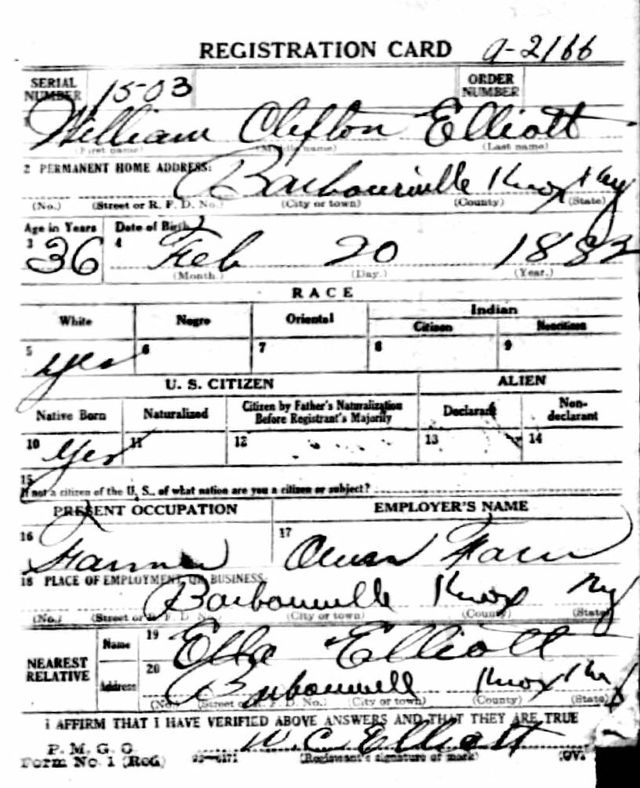 REGISTRATION CARD a-2166
SERIAL NUMBER 1503 ORDER NUMBER
1 William Clifton Elliott
(First name) (Middle name) (Last name)
2 PERMANENT HOME ADDRESS:
Barbourville Knox Ky
(No.) (Street or R. F. D. No.) (City or town) (County) (State)
Age in Years Date of Birth
3 36 4 Feb 20 1882
(Month.) (Day.) (Year.)
RACE
White Negro Oriental Indian
Citizen Noncitizen
5 Yes 6 7 8 9
U. S. CITIZEN ALIEN
Native Born Naturalized Citizen by Father's Naturalization Before Registrant's Majority Declarant Non-declarant
10 Yes 11 12 13 14
15
If not a citizen of the U. S., of what nation are you a citizen or subject?
PRESENT OCCUPATION EMPLOYER'S NAME
16 Farmer 17 Own Farm
18 PLACE OF EMPLOYMENT OR BUSINESS:
Barbourville Knox Ky
(No.) (Street or R. F. D. No.) (City or town) (County) (State)
NEAREST RELATIVE Name 19 Ella Elliott
Address 20 Barbourvill Knox Ky
(No.) (Street or R. F. D. No.) (City or town) (County) (State)
I AFFIRM THAT I HAVE VERIFIED ABOVE ANSWERS AND THAT THEY ARE TRUE
P. M. G. O.
Form No. 1 (Red) W. C. Elliott
(Registrant's signature or mark) (OV